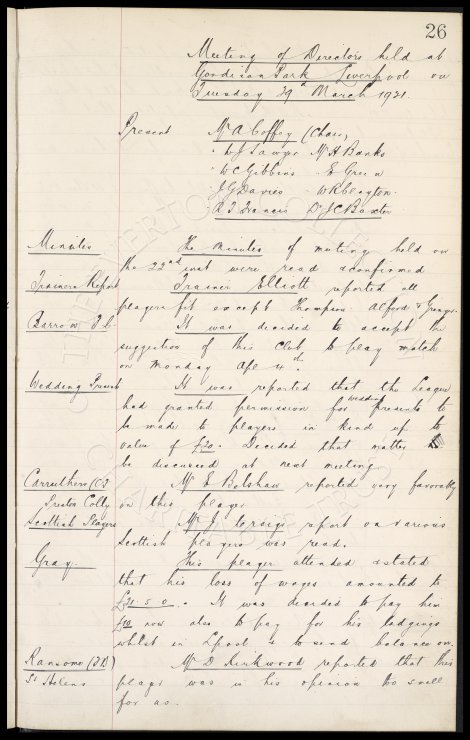 26
Meeting of Directors held at
Goodison Park Liverpool on
Tuesday 29th March 1921.
Present Mr A Coffey (Chair)
" W J Sawyer Mr H Banks
" W C Gibbins " E Green
" J G Davies " W R Clayton.
A T Francis Dr J C Baxter
Minutes The Minutes of meeting held on
the 22nd inst were read & confirmed
Trainers Report Trainer Elliott reported all
players fit except Thompson. Alford &
Barrow F.C. It was decided to accept the
suggestion of this Club to play match
on Monday Apl 4th.
Wedding Present It was reported that the League
had granted permission for wedding presents to
be made to players in kind up to
value of £20. Decided that matter
be discussed at next meeting
Carruthers Mr E Belshaw reported very favorably
Preston Colly on this player
Scottish Players Mr J Corsie's report on various
Scottish players was read.
Gray. This player attended & stated
that his loss of wages amounted to
£21. 5. 0. It was decided to pay him
£10 now also to pay for his lodgings
whilst in Lpool & to send balance on.
Ransome Mr D Kirkwood reported that this
St Helens player was in his opinion too small
for us.